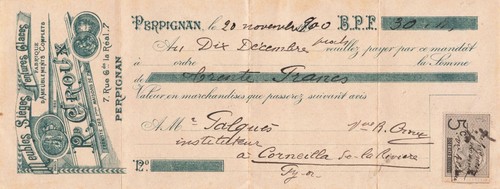 Meubles, Sièges, Tentures, Glaces
FABRIQUE
D'AMEUBLEMENTS COMPLETS
R. CROUX
7, Rue Gde la Réal, 7
PERPIGNAN
PERPIGNAN, le 20 novembre 1900 B.P.F. 30
Au Dix Décembre prochain veuillez payer par ce mandat
à ordre la Somme
de trente Francs
Valeur en marchandises que passerez suivant avis
A Mr Galguès Vve R. Croux
instituteur
à Corneilla de la Riviere
Py-Or
No
5